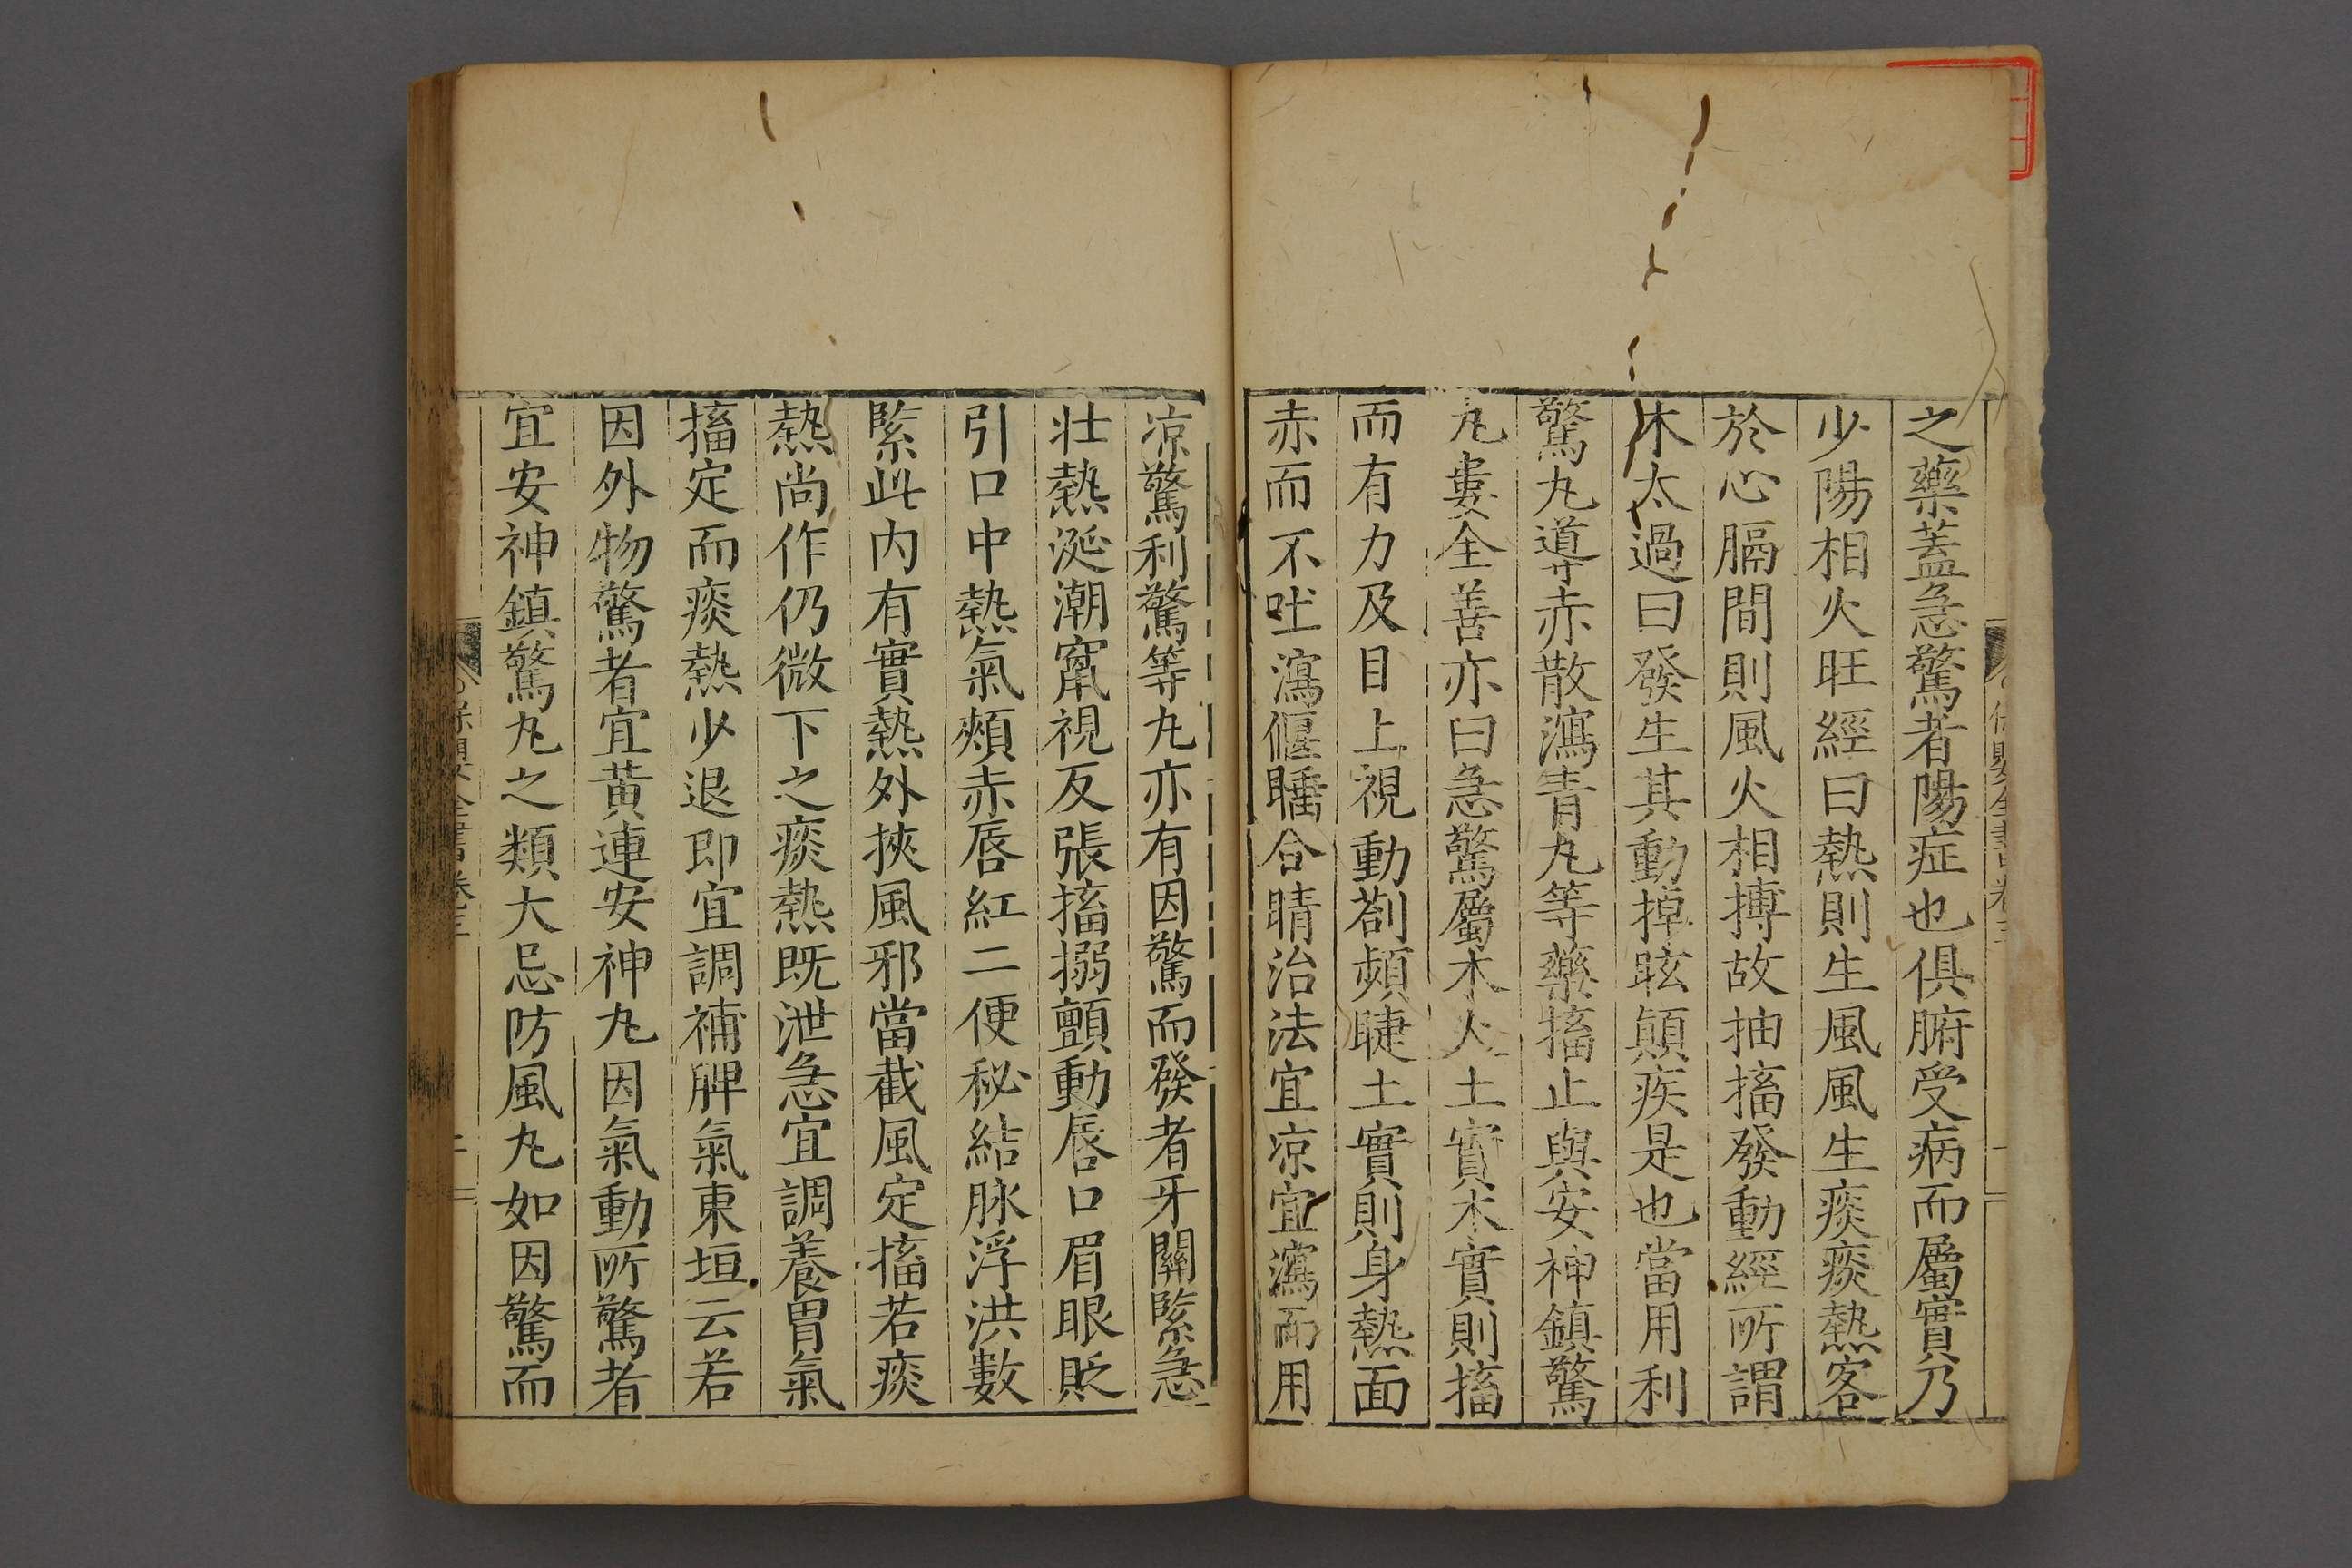 之藥蓋急驚者陽症也俱腑受病而屬實乃
少陽相火旺經曰熱則生風風生痰痰熱客
於心膈間則風火相搏故抽搐發動經所謂
木太過曰發生其動掉眩顛疾是也當用利
驚丸導赤散瀉青丸等藥搐止與安神鎮驚
丸婁全善亦曰急驚屬木火土實木實則搐
而有力及目上視動劄頻睫土實則身熱面
赤而不吐瀉偃睡合睛治法宜凉宜瀉而用
凉驚利驚等丸亦有因驚而發者牙關緊急
壯熱涎潮竄視反張搐搦顫動唇口眉眼眨
引口中熱氣頰赤唇紅二便秘結脉浮洪數
緊此内有實熱外挾風邪當截風定搐若痰
熱尚作仍微下之痰熱既泄急宜調養胃氣
搐定而痰熱少退即宜調補脾氣東垣云若
因外物驚者宜黃連安神丸因氣動所驚者
宜安神鎮驚丸之類大忌防風丸如因驚而